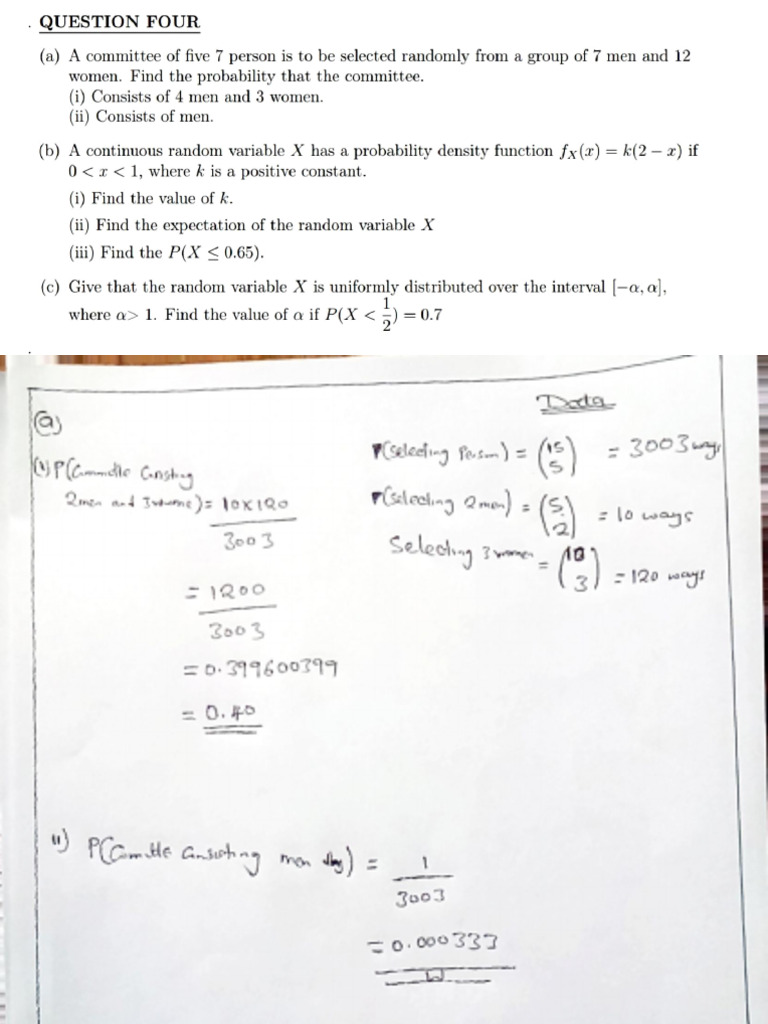 . QUESTION FOUR
(a) A committee of five 7 person is to be selected randomly from a group of 7 men and 12
women. Find the probability that the committee.
(i) Consists of 4 men and 3 women.
(ii) Consists of men.
(b) A continuous random variable X has a probability density function fX(x) = k(2 − x) if
0 < x < 1, where k is a positive constant.
(i) Find the value of k.
(ii) Find the expectation of the random variable X
(iii) Find the P(X ≤ 0.65).
(c) Give that the random variable X is uniformly distributed over the interval [−α, α],
where α> 1. Find the value of α if P(X < 1/2) = 0.7
Data
(a)
P(Selecting Person) = (15 5) = 3003 ways
(i) P(Committe Consisting
2men and 3women) = 10×120
3003
P(Selecting 2 men) = (5 2) = 10 ways
Selecting 3 women = (10 3) = 120 ways
= 1200
3003
= 0.399600399
= 0.40
ii) P(Committe Consisting men) = 1
3003
= 0.000333